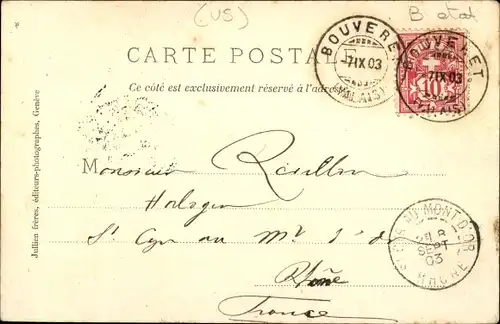 (VS)
B etat
CARTE POSTALE
Ce côté est exclusivement réservé à l'adresse
BOUVERET
-7.IX.03
(VALAIS)
BOUVERET
-7.IX.03
(VALAIS)
10
Monsieur
Horloger
St Cyr au Mt d'Or
Rhône
France
ST CYR AU MONT D'OR
8
SEPT
03
RHONE
Jullien frères, éditeurs-photographes, Genève